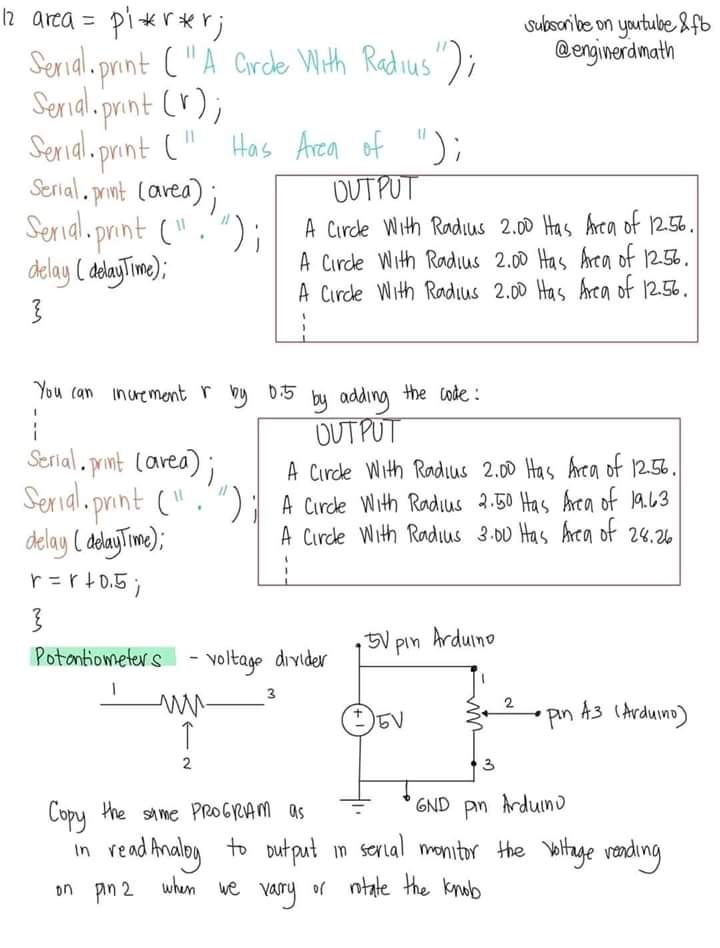 12 area = pi*r*r;
subscribe on youtube & fb
@enginerdmath
Serial.print ("A Circle With Radius");
Serial.print (r);
Serial.print (" Has Area of ");
Serial.print (area);
Serial.print (".");
delay (delayTime);
}
OUTPUT
A Circle With Radius 2.00 Has Area of 12.56.
A Circle With Radius 2.00 Has Area of 12.56.
A Circle With Radius 2.00 Has Area of 12.56.
You can increment r by 0.5 by adding the code:
Serial.print (area);
Serial.print (".");
delay (delayTime);
r = r+0.5;
}
OUTPUT
A Circle With Radius 2.00 Has Area of 12.56.
A Circle With Radius 2.50 Has Area of 19.63
A Circle With Radius 3.00 Has Area of 28.26
Potentiometers - voltage divider
1
3
2
5V pin Arduino
+
-
5V
1
2
pin A3 (Arduino)
3
GND pin Arduino
Copy the same PROGRAM as
in readAnalog to output in serial monitor the voltage reading
on pin 2 when we varry or rotate the knob